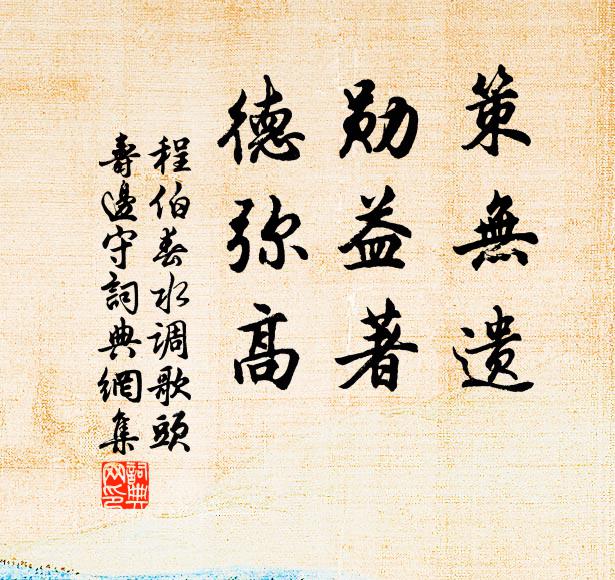 策無遗
勋益著
德弥高
程伯春水调歌頭
壽邊守詞典網集
詞典网印